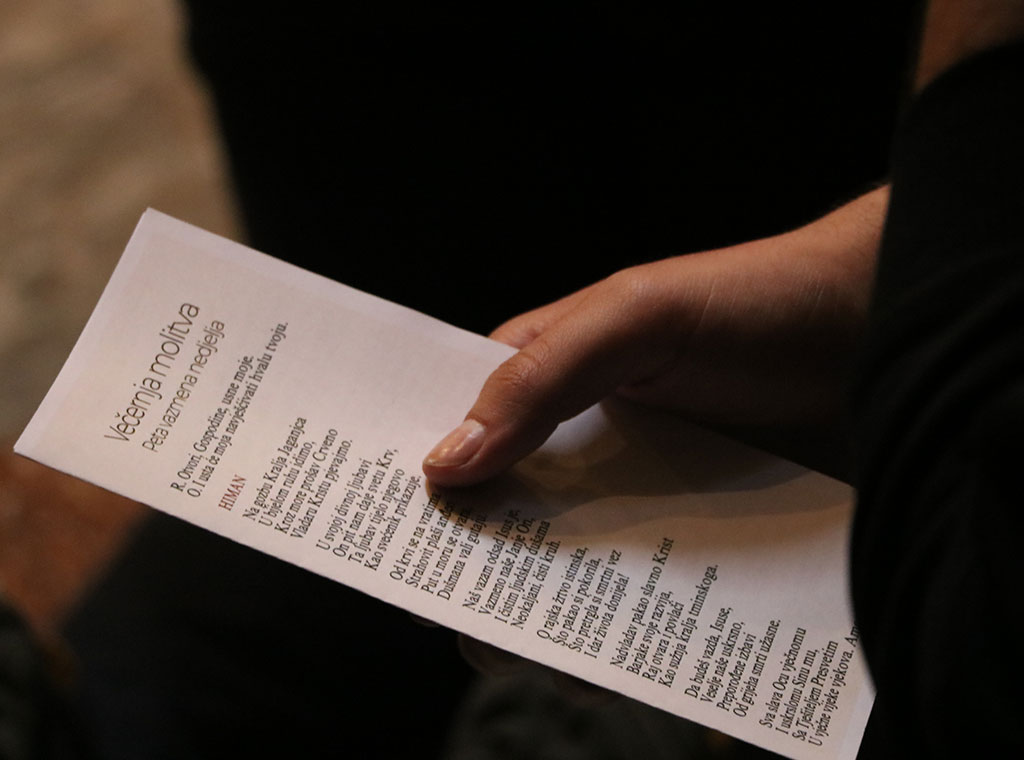 Večernja molitva
Peta vazmena nedjelja
R. Otvori, Gospodine, usne moje.
O. I usta će moja navješćivati hvalu tvoju.
HIMAN
Na gozbu Kralja Jaganjca
U bijelom ruhu idimo,
Kroz more prošav Crveno
Vladaru Kristu pjevajmo.
U svojoj divnoj ljubavi
On pit nam daje svetu Krv,
Ta ljubav tijelo njegovo
Kao svećenik prikazuje.
Od krvi se na vratima
Strahovit plaši anđeo
Put u moru se otvara,
Dušmana vali gutaju.
Naš vazam odsad Isus je,
Vazmeno naše Janje On,
I čistim ljudskim dušama
Neokaljani, čisti kruh.
O rajska žrtvo istinska,
Što pakao si pokorila,
Što pretrgla si smrtni vez
I dar života donijela!
Nadvladav pakao slavno Krist
Barjake svoje razvija,
Raj otvara i povlači
Kao sužnja kralja tminskoga.
Da budeš vazda, Isuse,
Veselje naše uskrsno,
Preporođene izbavi
Od grijeha smrti užasne.
Sva slava Ocu vječnomu
I uskrslomu Sinu mu,
Sa Tješiteljem Presvetim
U vječne vijeke vjekova.